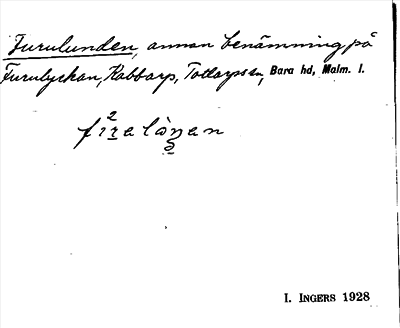 Furulunden, annan benämning på
Furulyckan, Kabbarp, Tottarps sn, Bara hd, Malm. l.
I. INGERS 1928